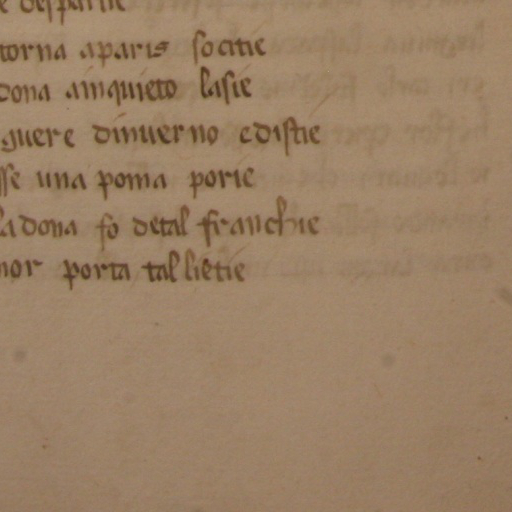 e desparue
torna aparis socitie
dona ainquieto lasie
guere dinuerno edistie
sse una poma porie
la dona fo detal franchie
mor porta tal lietie